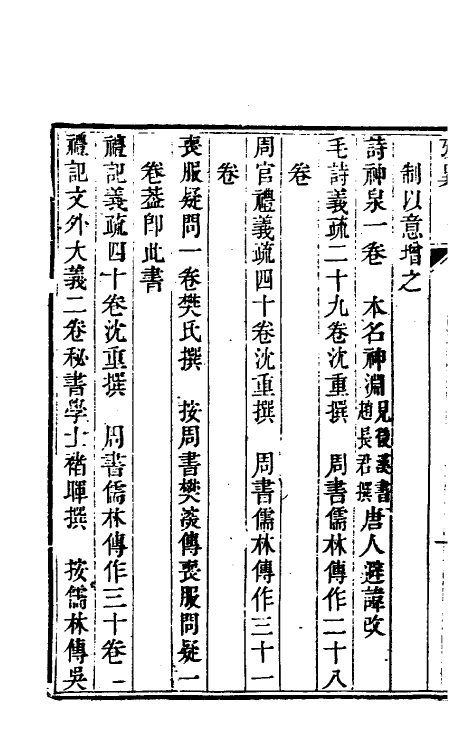 制以意增之
詩神泉一卷　本名神淵見後漢書趙長君撰唐人避諱改
毛詩義疏二十九卷沈重撰　周書儒林傳作二十八
卷
周官禮義疏四十卷沈重撰　周書儒林傳作三十一
卷
喪服疑問一卷樊氏撰　按周書樊深傳喪服問疑一
卷葢卽此書
禮記義疏四十卷沈重撰　周書儒林傳作三十卷
禮記文外大義二卷秘書學士褚暉撰　按儒林傳吳